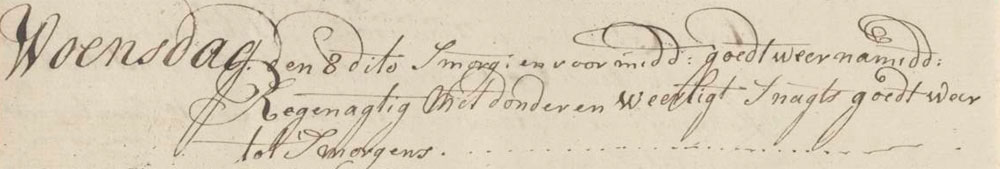 Woensdag. den 8 dito Smorg: en voormidd: goedt weer namidd:
Regenagtig Met donder en Weerligt Snagts goedt weer
tot Smorgens.